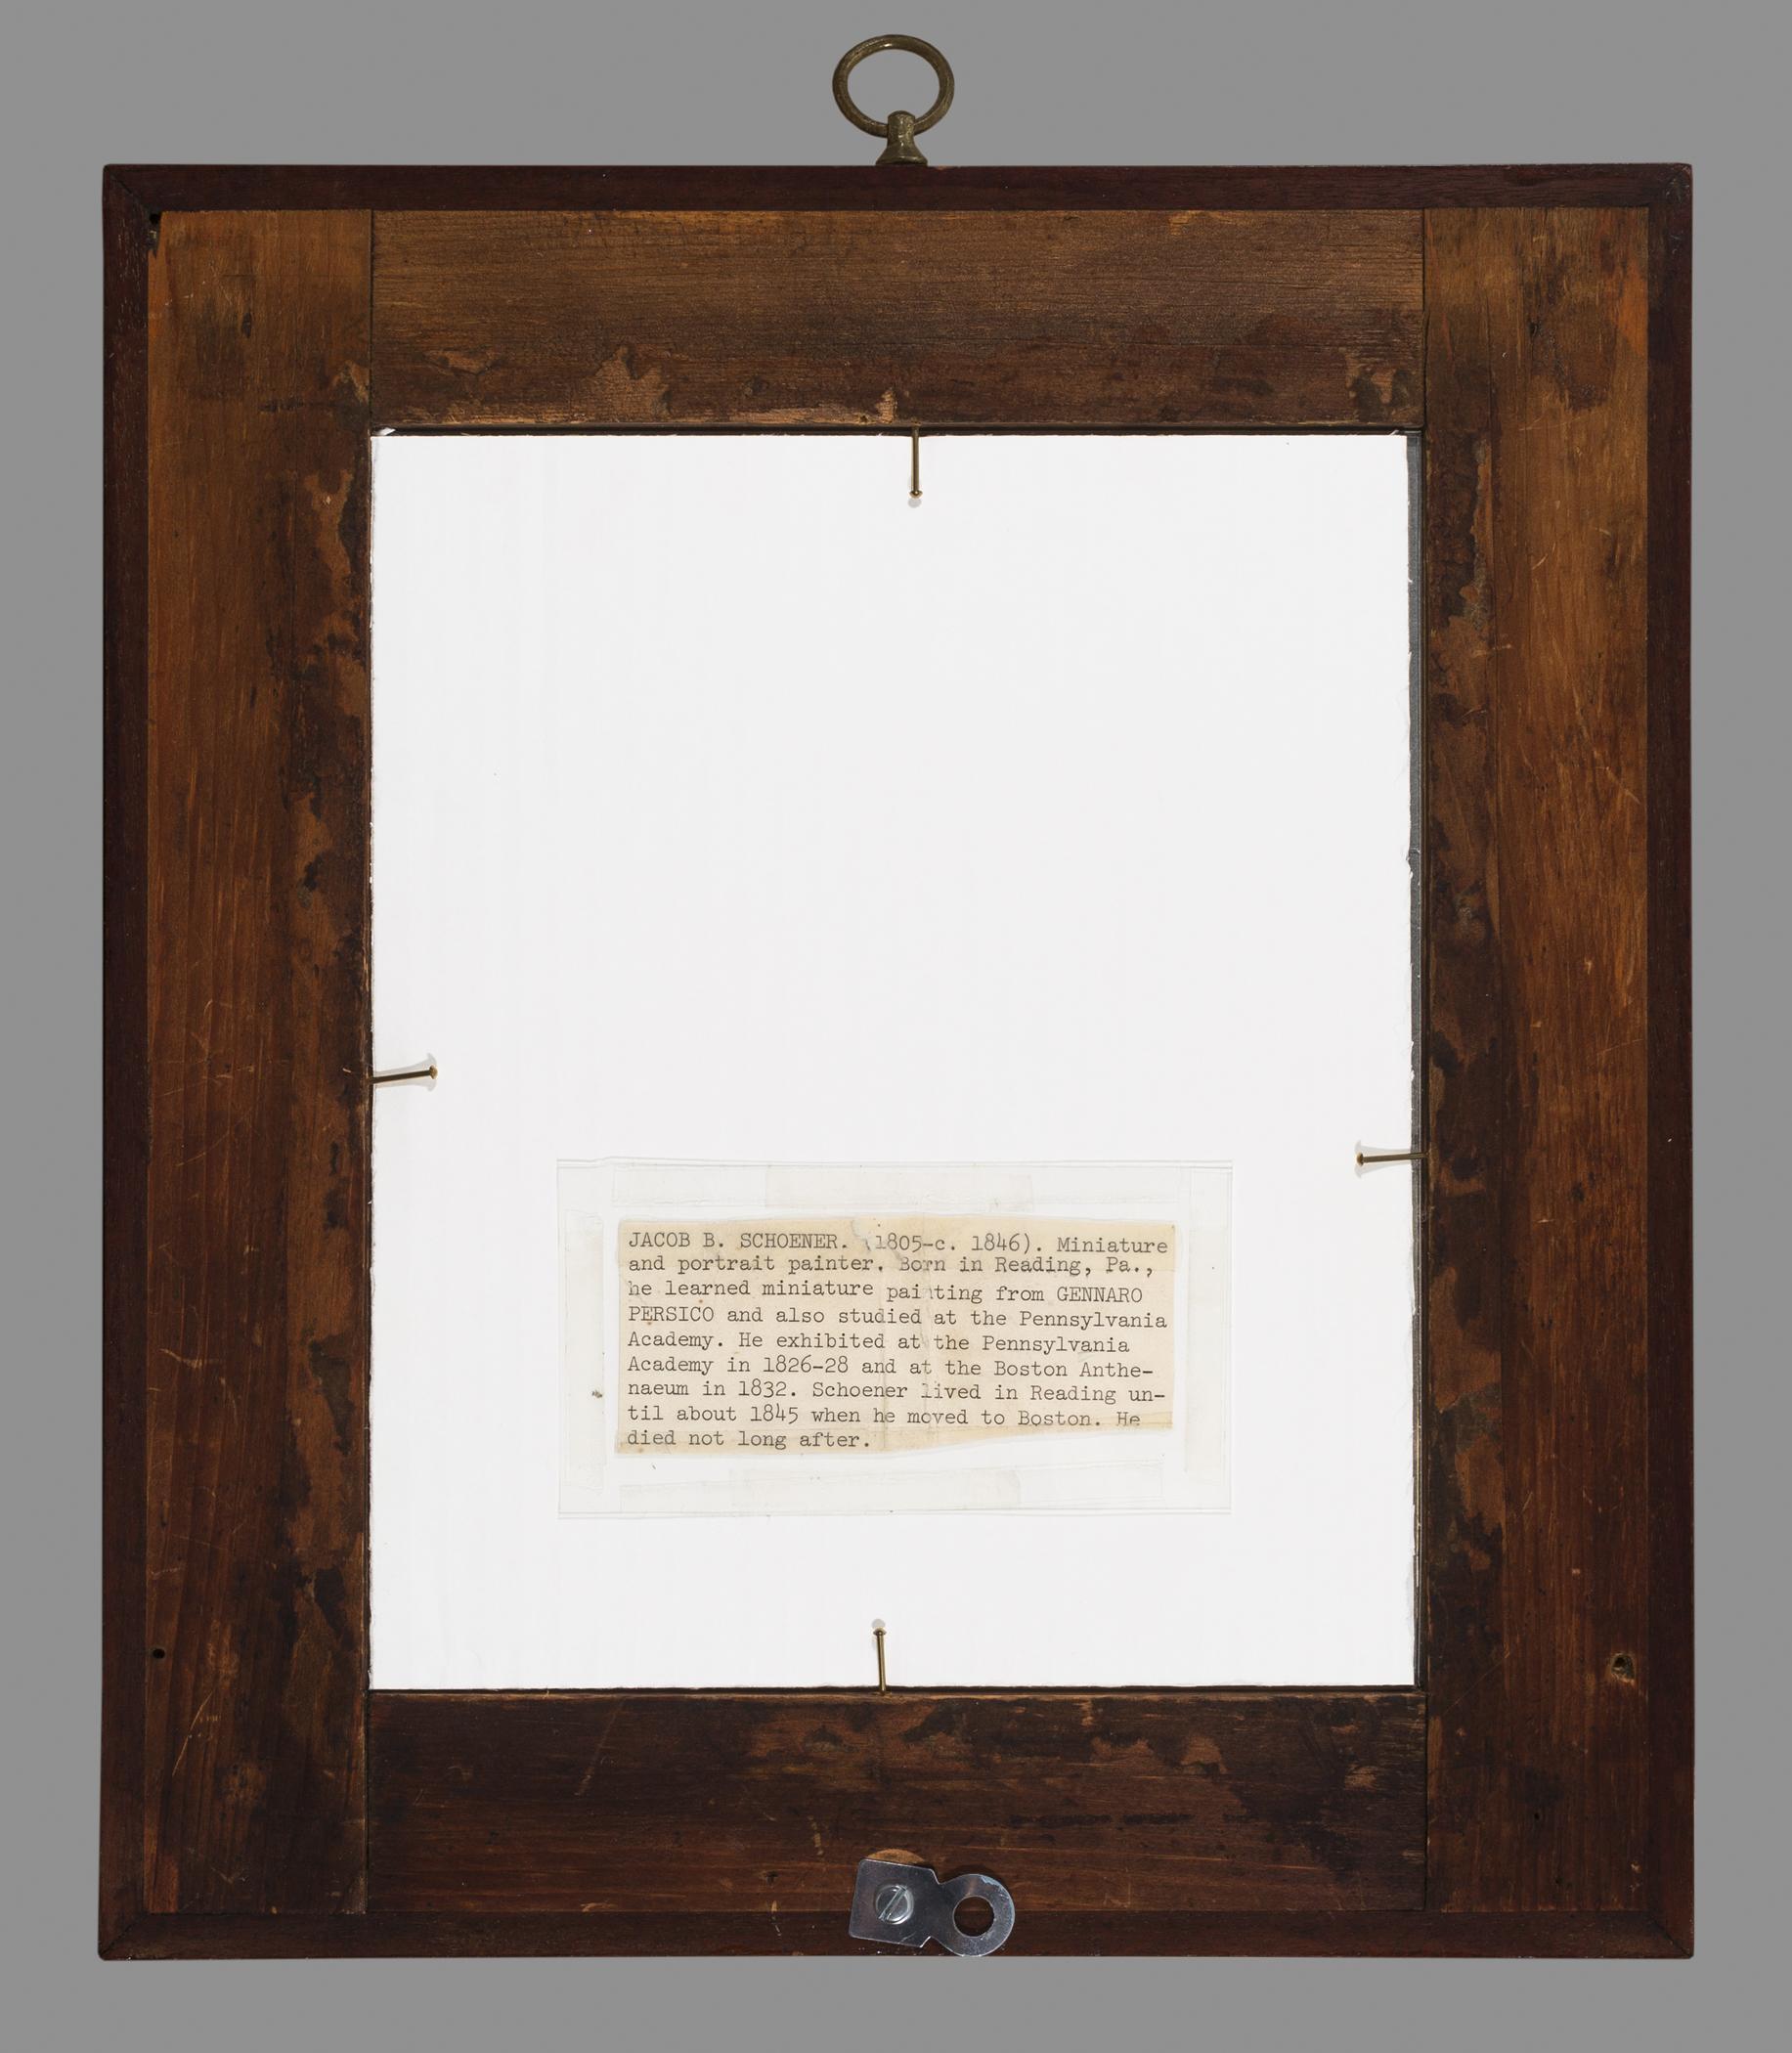 JACOB B. SCHOENER. (1805-c. 1846). Miniature
and portrait painter. Born in Reading, Pa.,
he learned miniature painting from GENNARO
PERSICO and also studied at the Pennsylvania
Academy. He exhibited at the Pennsylvania
Academy in 1826-28 and at the Boston Anthe-
naeum in 1832. Schoener lived in Reading un-
til about 1845 when he moved to Boston. He
died not long after.